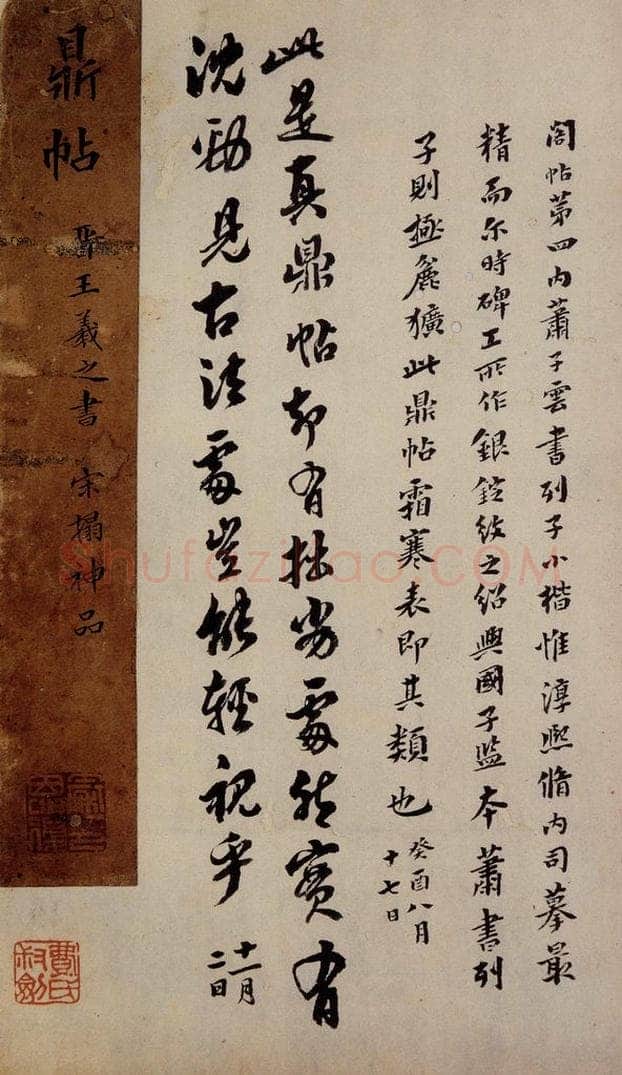 閣帖第四內蕭子雲書列子小楷惟淳熙脩內司摹最
精而尔時碑工所作銀錠紋之紹興國子監本蕭書列
子則極麄獷此鼎帖霜寒表即其類也
癸酉八月
十七日
此是真鼎帖却有拙劣處然實有
沈勁見古法處豈能輕視乎
十一月
二日
鼎帖
晉王羲之書 宋搨神品
費氏
ShufaZiliao.COM